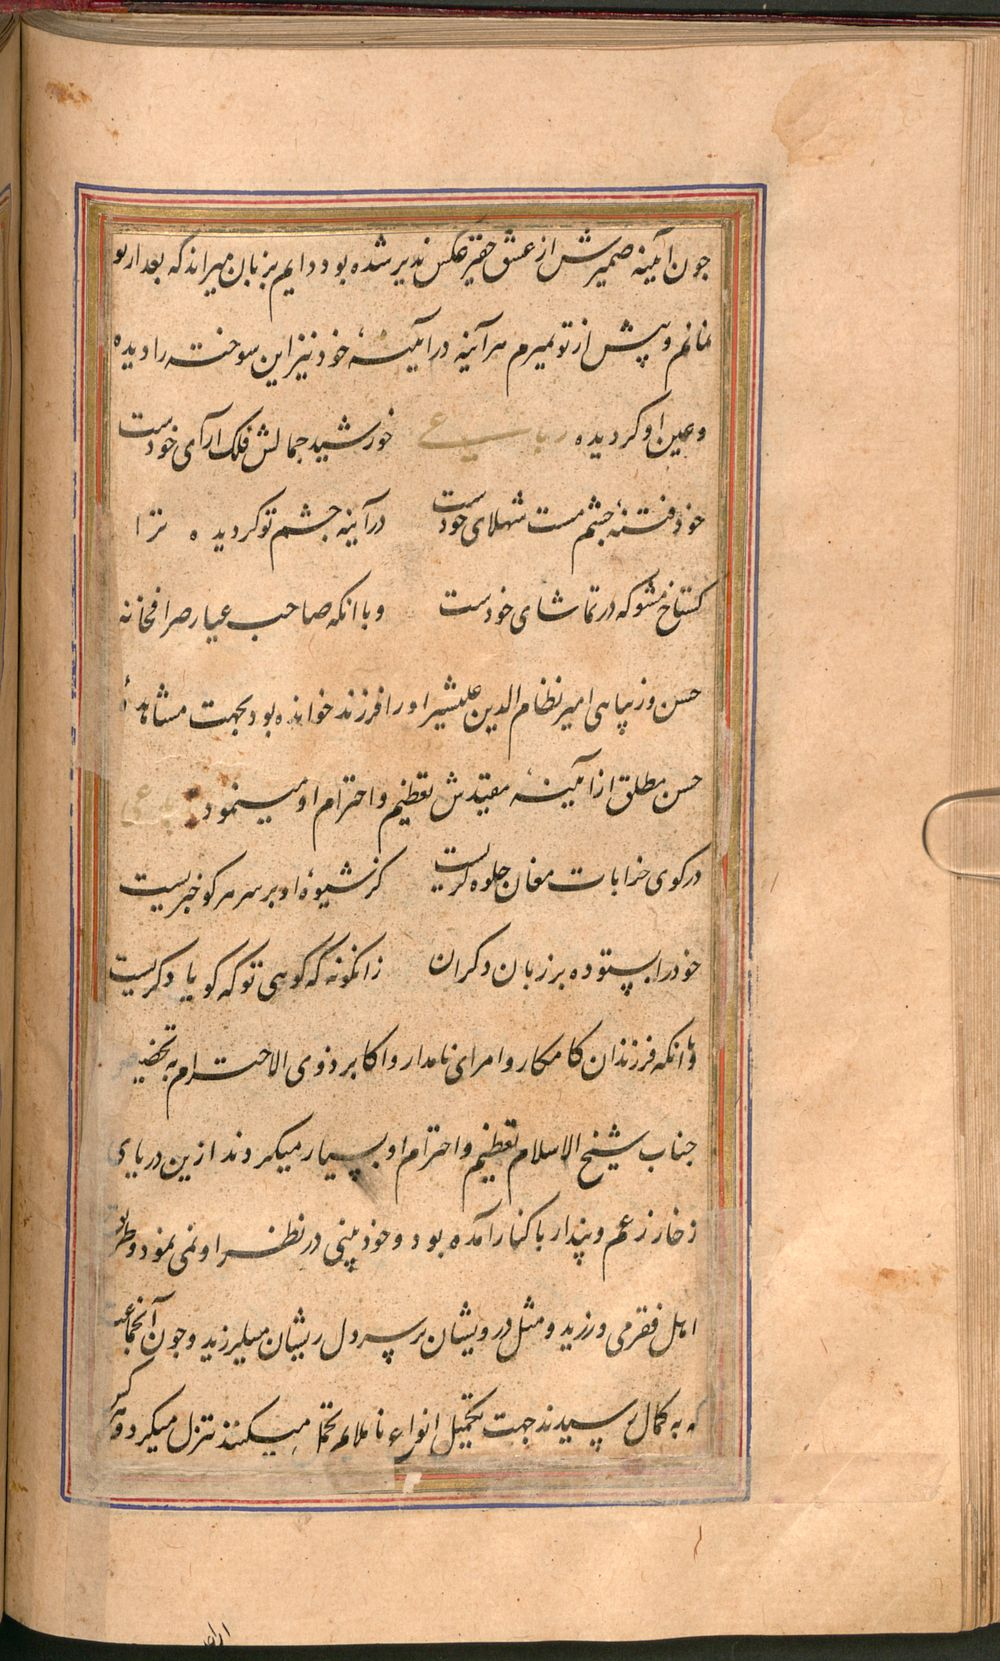 چون آینه ضمیرش از عشق حقیر عکس ندیر شده بود دایم بزبان میراند که بعد از تو
نمانم و پیش از تو نمیرم هر آینه در آیینهٔ خود نیز این سوخته را دیده
و عین او کردیده رباعی خورشید جمالش فلک آرای خودست
خود فتنهٔ چشم مست شهلای خودست در آینه چشم تو کردیده ترا
کستاخ مشو که در تماشای خودست و با انکه صاحب عیار صرافخانه
حسن و زیبایی امیر نظام الدین علیشیر او را فرزند خوانده بود بجهت مشاهدهٔ
حسن مطلق از آیینهٔ مقیدش تعظیم و احترام او مینمود رباعی
در کوی خرابات مغان جلوه کریست کز شیوهٔ او بر سر هر کو خبریست
خود را بستوده بر زبان دکران زانکونه که کویی تو که کویا دکریست
و با انکه فرزندان کامکار و امرای نامدار و اکابر ذوی الاحترام به تخصیص
جناب شیخ الاسلام تعظیم و احترام او بسیار میکردند ازین دریای
زخار زعم و پندار با کنار آمده بود و خود بینی در نظر او نمی نمود و طریق
اهل فقر می ورزید و مثل درویشان بر سر دل ریشان میلرزید و چون آنجماعت
که به کمال رسیدند جهت تکمیل انواع ناملایم تحمل میکنند تنزل میکرد و هر کس